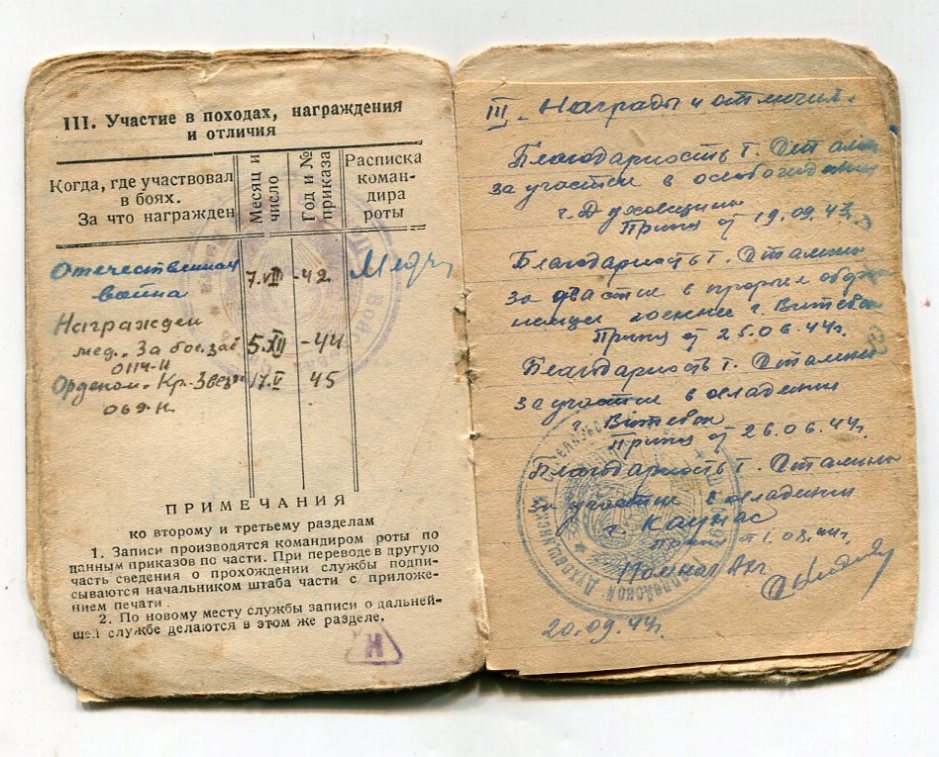 III. Участие в походах, награждения
и отличия
Когда, где участвовал
в боях.
За что награжден
Месяц и
число
Год и №
приказа
Расписка
коман-
дира
роты
Отечественная
война
7.VIII -42
Награжден
мед. За боев.
5.XII -44
0114-Н
Орденом Кр. Звез
17.V 45
069-Н.
ПРИМЕЧАНИЯ
ко второму и третьему разделам
1. Записи производятся командиром роты по
данным приказов по части. При переводе в другую
часть сведения о прохождении службы подпи-
сываются начальником штаба части с приложе-
нием печати.
2. По новому месту службы записи о дальней-
шей службе делаются в этом же разделе.
Н
III. Награды и отличия.
Благодарность т. Сталина
за участие в освобождении
г. Духовщины
Приказ от 19.09.43г.
Благодарность т. Сталина
за участие в прорыве оборо
немцев г. Витебск
Приказ от 25.06.44г.
Благодарность т. Сталина
за участие в овладении
г. Витебск
Приказ от 26.06.44г.
Благодарность т. Сталина
за участие в овладении
г. Каунас
Приказ от 1.08.44г.
20.09.44г.